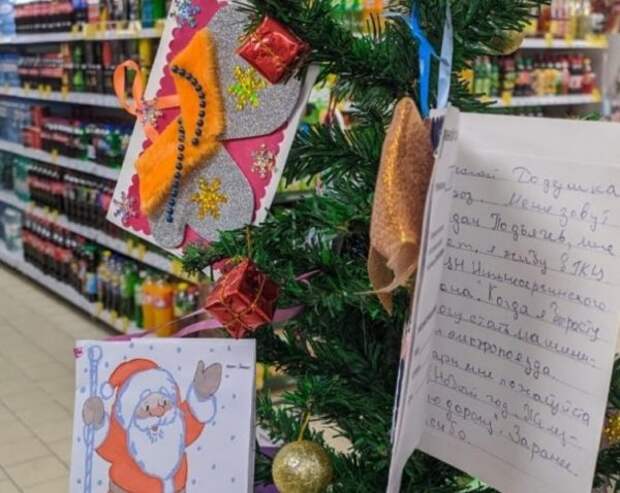 Дедушка
Меня зовут
Подъячев, мне
ет, я живу в ГКУ
Н Нижнесергинского
она". Когда я вырасту
огу стать машини-
электропоезда.
ари мне пожалуйста
Новый год "Желез-
ю дорогу". Заране
сибо.